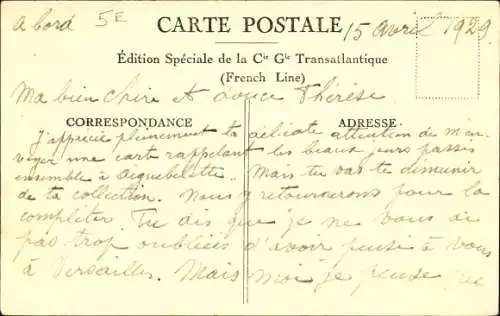 a bord 5E
CARTE POSTALE
15 avril 1929.
Édition Spéciale de la Cie Gle Transatlantique
(French Line)
Ma bien chère et douce Thérèse
CORRESPONDANCE
ADRESSE
J'apprécie pleinement ta délicate attention de m'en-
voyer une carte rappelant les beaux jours passés
ensemble à Aiguebelette. Mais tu vas te démunir
de ta collection. Nous y retournerons pour la
compléter. Tu dis que je ne vous ai
pas trop oubliées d'avoir pensé à vous
à Versailles. Mais moi je pense que